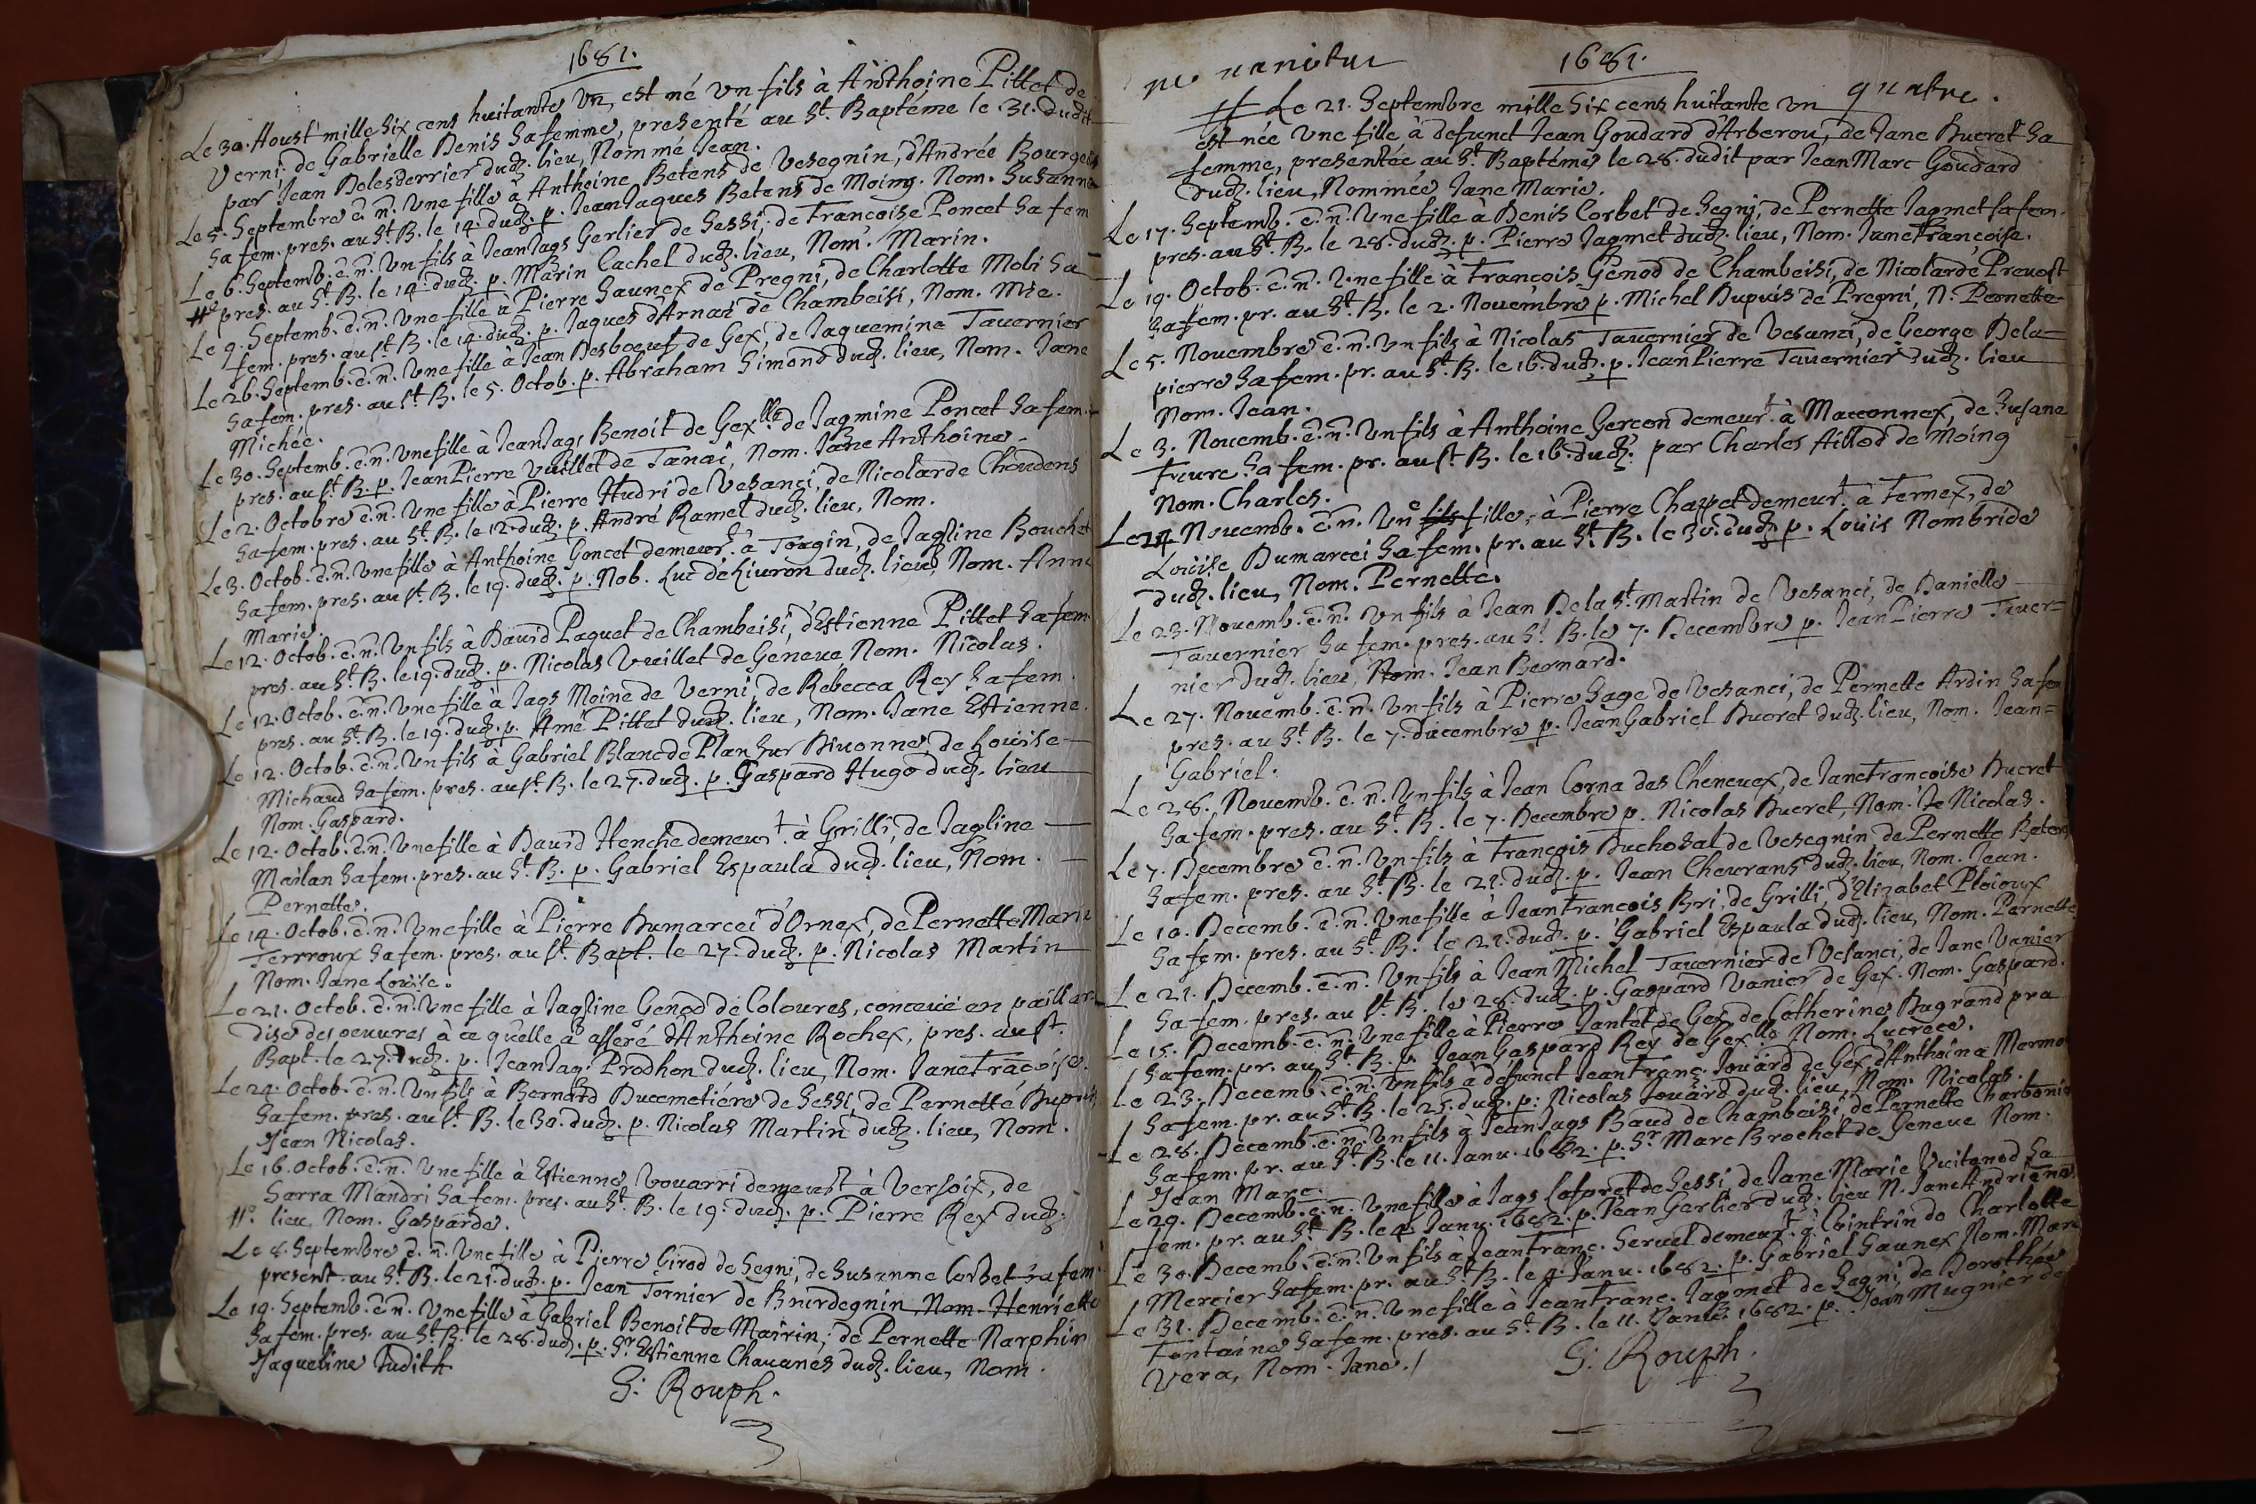 1681.
Le 30. Aoust mille six cens huitante vn, est né vn fils à Anthoine Pillet de
Verni, de Gabrielle Denis sa femme, presenté au St. Baptéme le 31. dudit
par Jean Delesderrier dud. lieu, Nommé Jean.
Le 5. Septembre ē. n̄. vne fille à Anthoine Betens de Vesegnin, d'Andrée Bourgeois
sa fem. pres. au St. B. le 14. dud. p. Jean Jaques Betens de Moing. Nom. Susanne
Le 6. Septemb. ē. n̄. vn fils à Jean Jaqs Gerlier de Sessi, de Francoise Poncet sa fem
pres. au St. B. le 14. dud. p. Marin Cachel dud. lieu, Nom. Marin.
Le 9. Septemb. ē. n̄. vne fille à Pierre Saunex de Pregni, de Charlotte Mobi sa
fem. pres. au St. B. le 14. dud. p. Jaques d'Arnaz de Chambeisi, Nom. Mie.
Le 26. Septemb. ē. n̄. vne fille à Jean Desboeufs de Gex, de Jaquemine Tauernier
sa fem. pres. au St. B. le 5. Octob. p. Abraham Simond dud. lieu, Nom. Jane
Michée.
Le 30. Septemb. ē. n̄. vne fille à Jean Jaqs Benoit de Gex lla de Jaqmine Poncet sa fem.
pres. au St. B. p. Jean Pierre Vuillet de Tanai, Nom. Jane Anthoine
Le 2. Octobre ē. n̄. vne fille à Pierre Hudri de Vesanci, de Nicolarde Choudens
sa fem. pres. au St. B. le 12. dud. p. André Ramel dud. lieu, Nom.
Le 3. Octob. ē. n̄. vne fille à Anthoine Goncet demeurt. à Tougin, de Jaqline Bouchet
sa fem. pres. au St. B. le 19. dud. p. Nob. Luc de Liuron dud. lieu, Nom. Anne
Marie.
Le 12. Octob. ē. n̄. vn fils à Dauid Paquet de Chambeisi, d'Estienne Pillet sa fem.
pres. au St. B. le 19. dud. p. Nicolas Vuillet de Geneue Nom. Nicolas.
Le 12. Octob. ē. n̄. vne fille à Jaqs Moine de Verni, de Rebecca Rey sa fem.
pres. au St. B. le 19. dud. p. Amé Pillet dud. lieu, Nom. Jane Estienne.
Le 12. Octob. ē. n̄. vn fils à Gabriel Blanc de Plan sur Diuonne, de Louise
Michaud sa fem. pres. au St. B. le 27. dud. p. Gaspard Hugo dud. lieu
Nom. Gaspard.
Le 12. Octob. ē. n̄. vne fille à Dauid Henche demeurt. à Grilli, de Jaqline
Mailan sa fem. pres. au St. B. p. Gabriel Espaula dud. lieu, Nom.
Pernette.
Le 14. Octob. ē. n̄. vne fille à Pierre Dumarcei d'Ornex, de Pernette Marie
Terrroux sa fem. pres. au St. Bapt. le 27. dud. p. Nicolas Martin
Nom. Jane Louise.
Le 21. Octob. ē. n̄. vne fille à Jaqline Genod de Coloures, conceüe en paillar-
dise des oeuures à ce qu'elle a asseré d'Anthoine Rochex, pres. au St.
Bapt. le 27. dud. p. Jean Jaq. Prodhon dud. lieu, Nom. Jane Fracoise.
Le 24. Octob. ē. n̄. vn fils à Bernard Ducemetiére de Sessi, de Pernette Dupuis
sa fem. pres. au St. B. le 30. dud. p. Nicolas Martin dud. lieu, Nom.
Jean Nicolas.
Le 16. Octob. ē. n̄. vne fille à Estienne Vouarri demeurt à Versoix, de
Sarra Mandri sa fem. pres. au St. B. le 19. dud. p. Pierre Rey dud.
lieu, Nom. Gasparde.
Le 8. Septembre ē. n̄. vne fille à Pierre Girod de Segni, de Susanne Corbet sa fem.
present. au St. B. le 21. dud. p. Jean Tornier de Bourdegnin Nom. Henriette
Le 19. Septemb. ē. n̄. vne fille à Gabriel Benoit de Mairin, de Pernette Narphin
sa fem. pres. au St. B. le 28. dud. p. Sr. Estienne Chauanes dud. lieu, Nom.
Jaqueline Judith
G: Rouph.
ne uarietur 1681. quatre.
Le 21. Septembre mille six cens huitante vn
est née vne fille à defunct Jean Goudard d'Arberou, de Jane Bucret sa
femme, presentée au St. Baptéme le 28. dudit par Jean Marc Goudard
dud. lieu, Nommée Jane Marie.
Le 17. Septemb. ē. n̄. vne fille à Denis Corbet de Segni, de Pernette Jaqmet sa fem.
pres. au St. B. le 28. dud. p. Pierre Jaqmet dud. lieu, Nom. Jane Françoise.
Le 19. Octob. ē. n̄. vne fille à Francois Genod de Chambeisi, de Nicolarde Preuost
sa fem. pr. au St. B. le 2. Nouembre p. Michel Dupuis de Pregni, N. Pernette
Le 5. Nouembre ē. n̄. vn fils à Nicolas Tauernier de Vesanci, de George Dela=
pierre sa fem. pr. au St. B. le 16. dud. p. Jean Pierre Tauernier dud. lieu
Nom. Jean.
Le 3. Nouemb. ē. n̄. vn fils à Anthoine Gercon demeurt. à Macconnex, de Susane
Fieure sa fem. pr. au St. B. le 16. dud. par Charles Aillod de Moing
Nom. Charles.
Le 14 Nouemb. ē. n̄. vne fils fille, à Pierre Chappet demeurt. à Fernex, de
Louise Dumarcei sa fem. pr. au St. B. le 30. dud. p. Louis Nombride
dud. lieu, Nom. Pernette.
Le 23. Nouemb. ē. n̄. vn fils à Jean Dela St. Martin de Vesanci, de Danielle
Tauernier sa fem. pres. au St. B. le 7. Decembre p. Jean Pierre Tauer=
nier dud. lieu, Nom. Jean Bernard.
Le 27. Nouemb. ē. n̄. vn fils à Pierre Sage de Vesanci, de Pernette Ardin sa fem
pres. au St. B. le 7. decembre p. Jean Gabriel Ducret dud. lieu, Nom. Jean=
Gabriel.
Le 28. Nouemb. ē. n̄. vn fils à Jean Corna des Cheneuex, de Jane Francoise Ducret
sa fem. pres. au St. B. le 7. Decembre p. Nicolas Ducret, Nom. Je Nicolas.
Le 7. Decembre ē. n̄. vn fils à François Duchosal de Vesegnin de Pernette Betens
sa fem. pres. au St. B. le 21. dud. p. Jean Cheurans dud. lieu, Nom. Jean.
Le 10. Decemb. ē. n̄. vne fille à Jean Francois Bri, de Grilli, d'Elizabet Ploioux
sa fem. pres. au St. B. le 21. dud. p. Gabriel Espaula dud. lieu, Nom. Pernette
Le 21. Decemb. ē. n̄. vn fils à Jean Michel Tauernier de Vesanci, de Jane Vanier
sa fem. pres. au St. B. le 28. dud. p. Gaspard Vanier de Gex. Nom. Gaspard.
Le 15. Decemb. ē. n̄. vne fille à Pierre Jantet de Gex de Catherine Dugrandpra
sa fem. pr. au St. B. p. Jean Gaspard Rey de Gex lla Nom. Lucrece.
Le 23. Decemb. ē. n̄. vn fils à defunct Jean Franc. Jouard de Gex d'Anthoina Mermo
sa fem. pr. au St. B. le 25. dud. p. Nicolas Jouard dud. lieu, Nom. Nicolas.
Le 28. Decemb. ē. n̄. vn fils à Jean Jaqs Baud de Chambeisi, de Pernette Charbonie
sa fem. pr. au St. B. le 11. Janu. 1682. p. Sr Marc Brochet de Geneue Nom.
Jean Marc.
Le 29. Decemb. ē. n̄. vne fille à Jaqs Laspret de Sessi, de Jane Marie Vuitonod sa
fem. pr. au St. B. le 4. Janu. 1682. p. Jean Gerlier dud. lieu N. Jane Andriéne.
Le 30. Decemb. ē. n̄. vn fils à Jean Franc. Seruel demeurt. à Cointrin de Charlotte
Mercier sa fem. pr. au St. B. le 4. Janu. 1682. p. Gabriel Saunex Nom. Marc
Le 31. Decemb. ē. n̄. vne fille à Jean Franc. Jaqmet de Segni, de Dorothée
Fontaine sa fem. pres. au St. B. le 11. Janu. 1682. p. Jean Mugnier de
Vera, Nom. Jane./
G: Rouph.